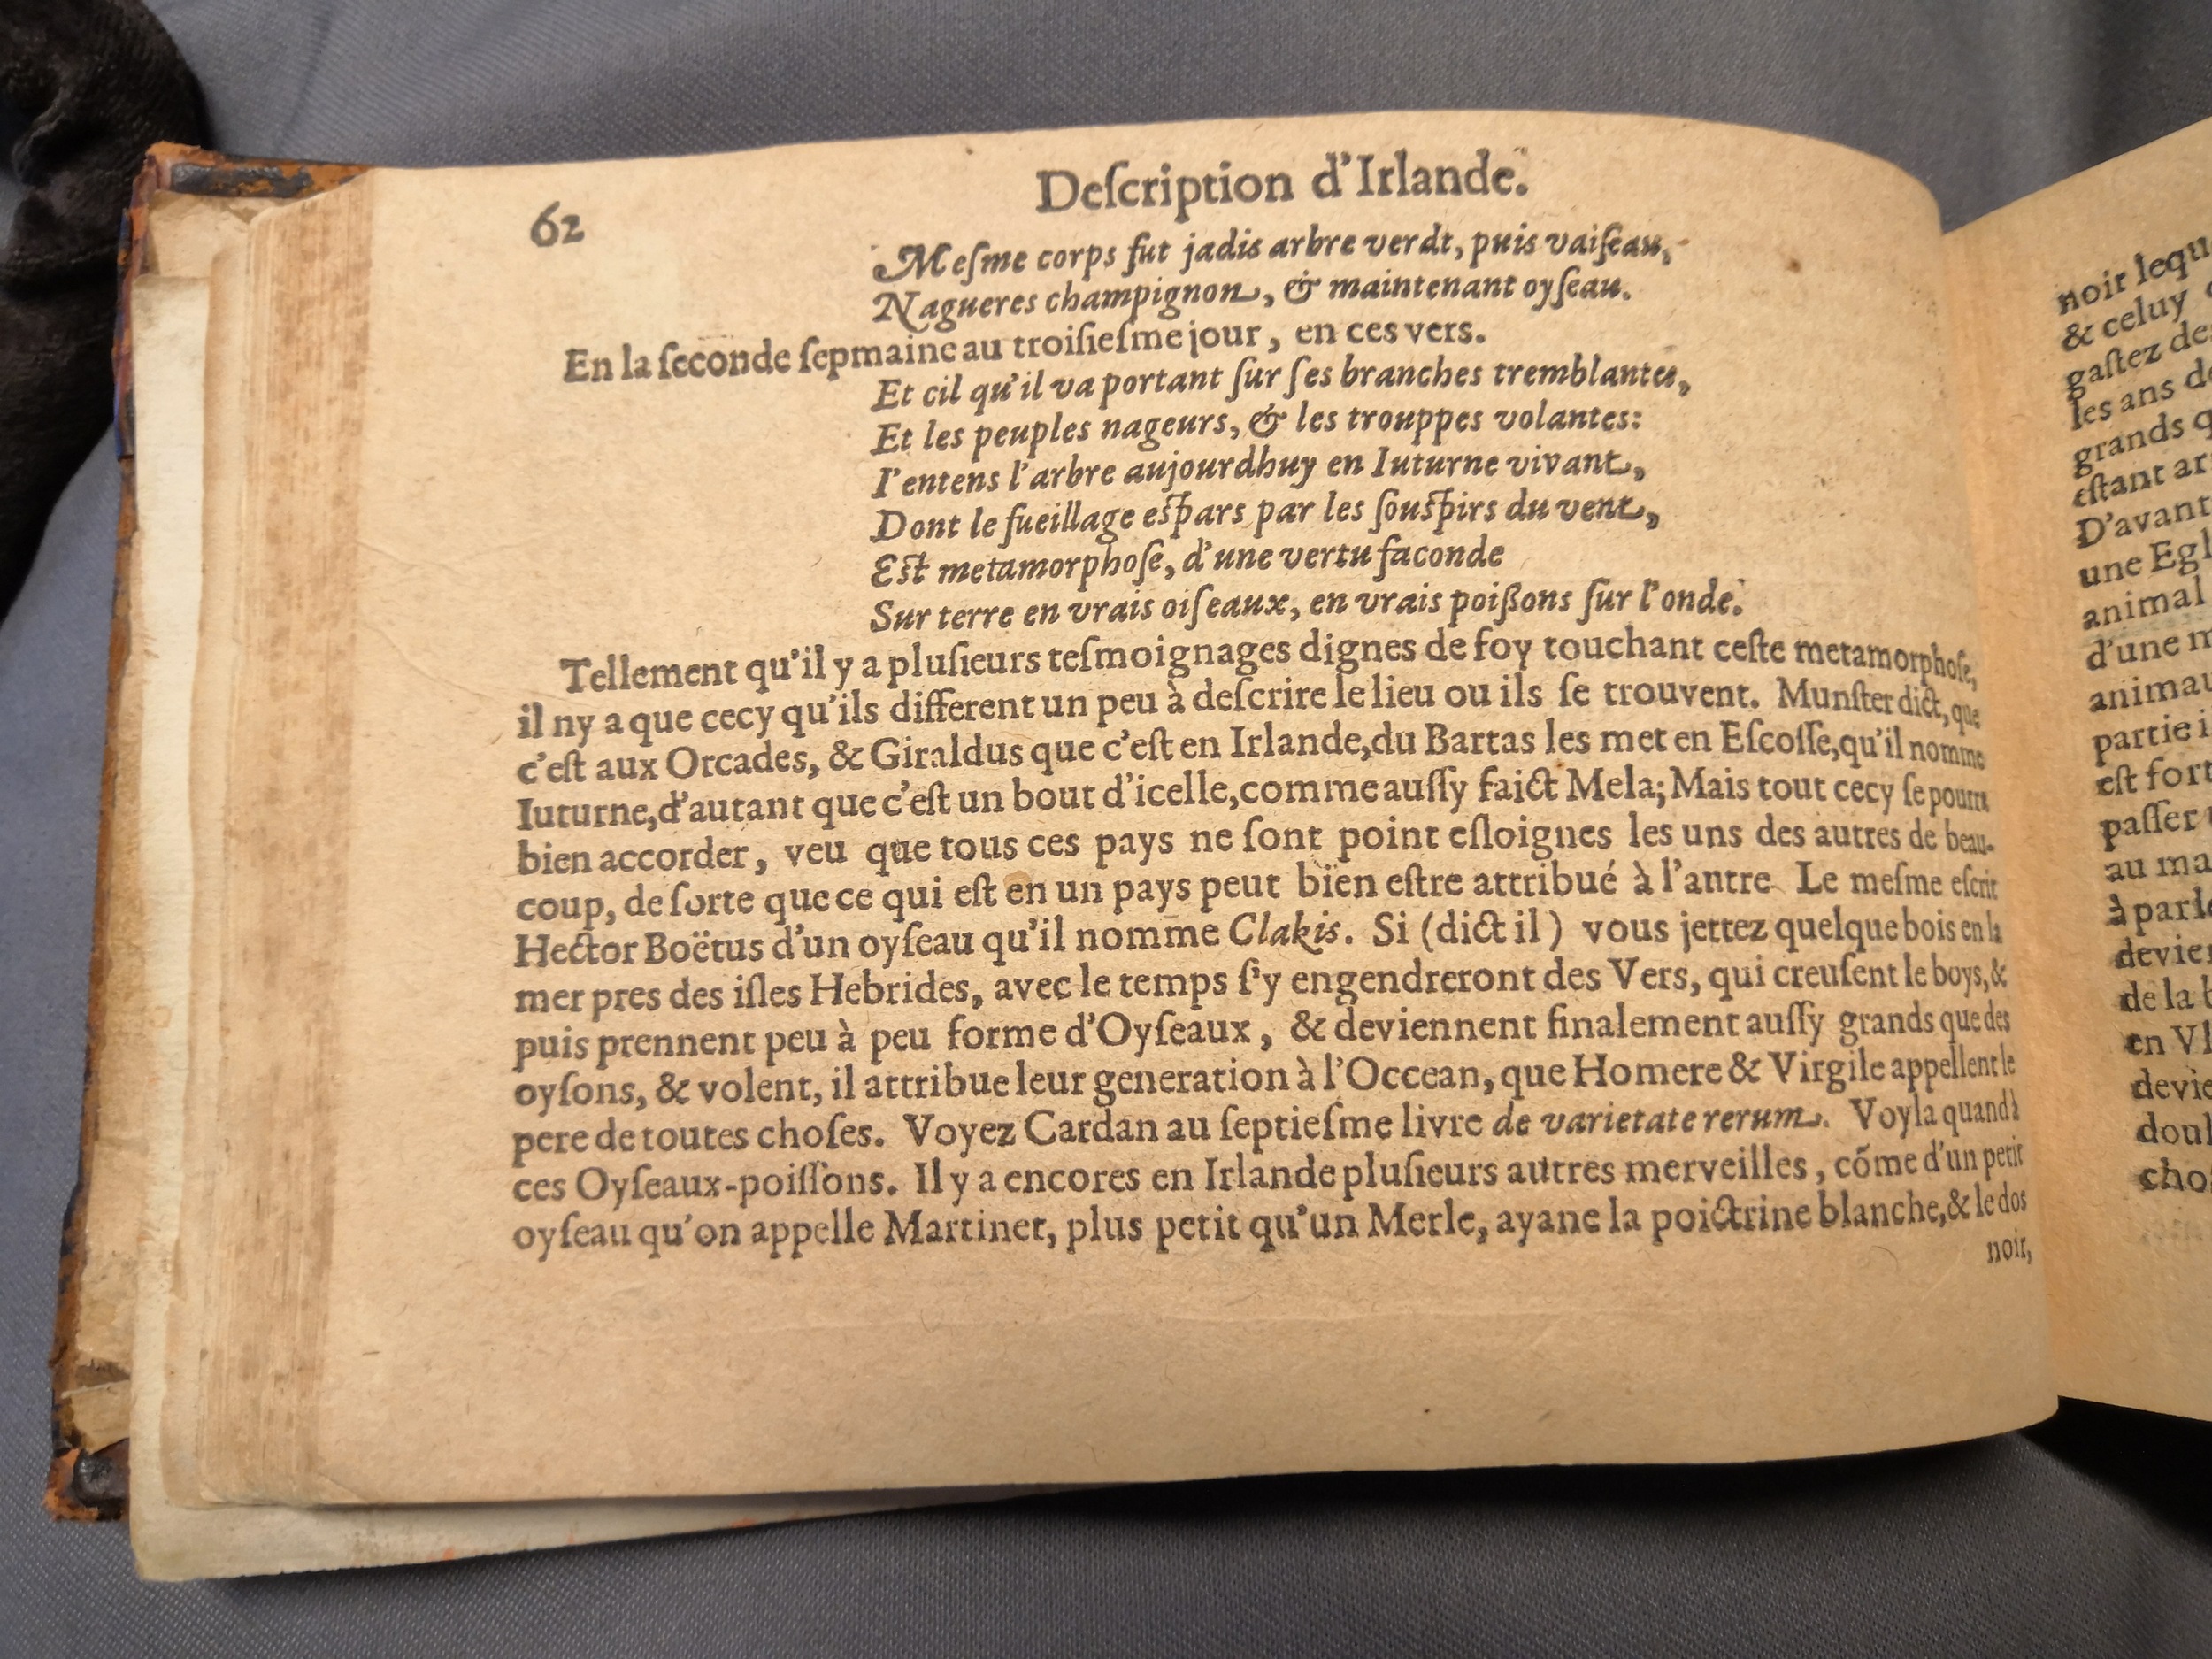 62
Deſcription d'Irlande.
Meſme corps fut jadis arbre verdt, puis vaiſeau,
Nagueres champignon, & maintenant oyſeau.
En la ſeconde ſepmaine au troiſieſme jour, en ces vers.
Et cil qu'il va portant ſur ſes branches tremblantes,
Et les peuples nageurs, & les trouppes volantes:
I'entens l'arbre aujourdhuy en Iuturne vivant,
Dont le fueillage eſpars par les ſouſpirs du vent,
Eſt metamorphoſe, d'une vertu faconde
Sur terre en vrais oiſeaux, en vrais poißons ſur l'onde.
Tellement qu'il y a pluſieurs teſmoignages dignes de foy touchant ceſte metamorphoſe,
il ny a que cecy qu'ils different un peu à deſcrire le lieu ou ils ſe trouvent. Munſter dict, que
c'eſt aux Orcades, & Giraldus que c'eſt en Irlande, du Bartas les met en Eſcoſſe, qu'il nomme
Iuturne, d'autant que c'eſt un bout d'icelle, comme auſſy faict Mela; Mais tout cecy ſe pourra
bien accorder, veu que tous ces pays ne ſont point eſloignes les uns des autres de beau-
coup, de ſorte que ce qui eſt en un pays peut bien eſtre attribué à l'antre Le meſme eſcrit
Hector Boëtus d'un oyſeau qu'il nomme Clakis. Si (dict il) vous jettez quelque bois en la
mer pres des iſles Hebrides, avec le temps ſ'y engendreront des Vers, qui creuſent le boys, &
puis prennent peu à peu forme d'Oyſeaux, & deviennent finalement auſſy grands que des
oyſons, & volent, il attribue leur generation à l'Occean, que Homere & Virgile appellent le
pere de toutes choſes. Voyez Cardan au ſeptieſme livre de varietate rerum. Voyla quand à
ces Oyſeaux-poiſſons. Il y a encores en Irlande pluſieurs autres merveilles, cõme d'un petit
oyſeau qu'on appelle Martinet, plus petit qu'un Merle, ayane la poictrine blanche, & le dos
noir,
noir lequ
& celuy
gaſtez de
les ans de
grands q
eſtant ar
D'avant
une Egl
animal
d'une m
animau
partie i
eſt fort
paſſer
au ma
à parle
devien
de la b
en Vl
devie
doul
cho